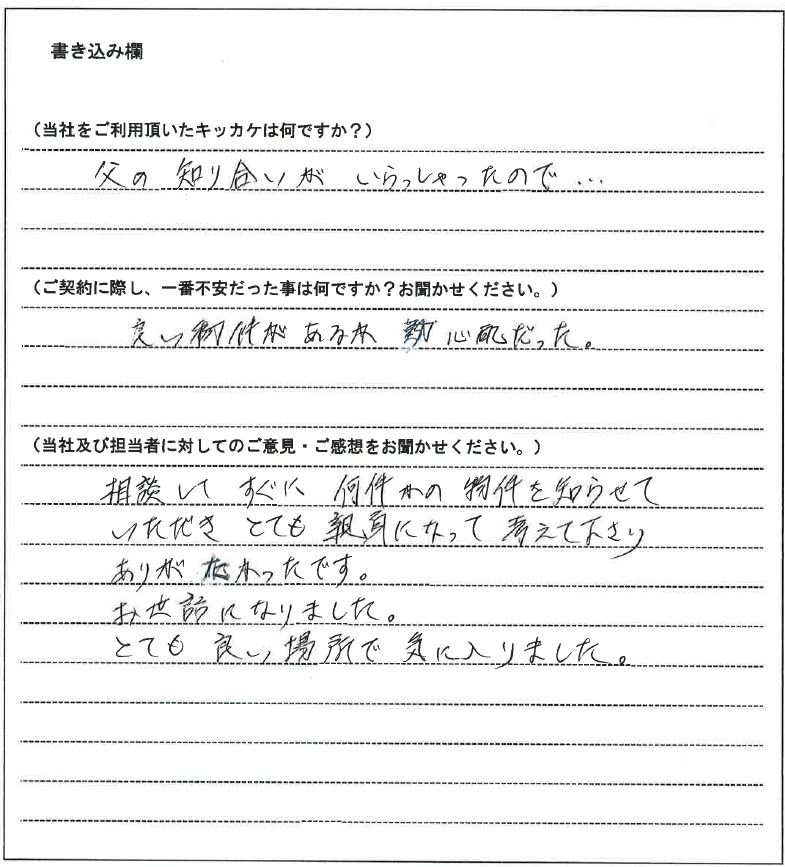 書き込み欄
（当社をご利用頂いたキッカケは何ですか？）
父の 知り合いが いらっしゃったので…
（ご契約に際し、一番不安だった事は何ですか？お聞かせください。）
良い物件があるか 心配だった。
（当社及び担当者に対してのご意見・ご感想をお聞かせください。）
相談して すぐに 何件かの 物件を知らせて
いただき とても 親身になって 考えて下さり
ありがたかったです。
お世話になりました。
とても 良い 場所で 気に入りました。